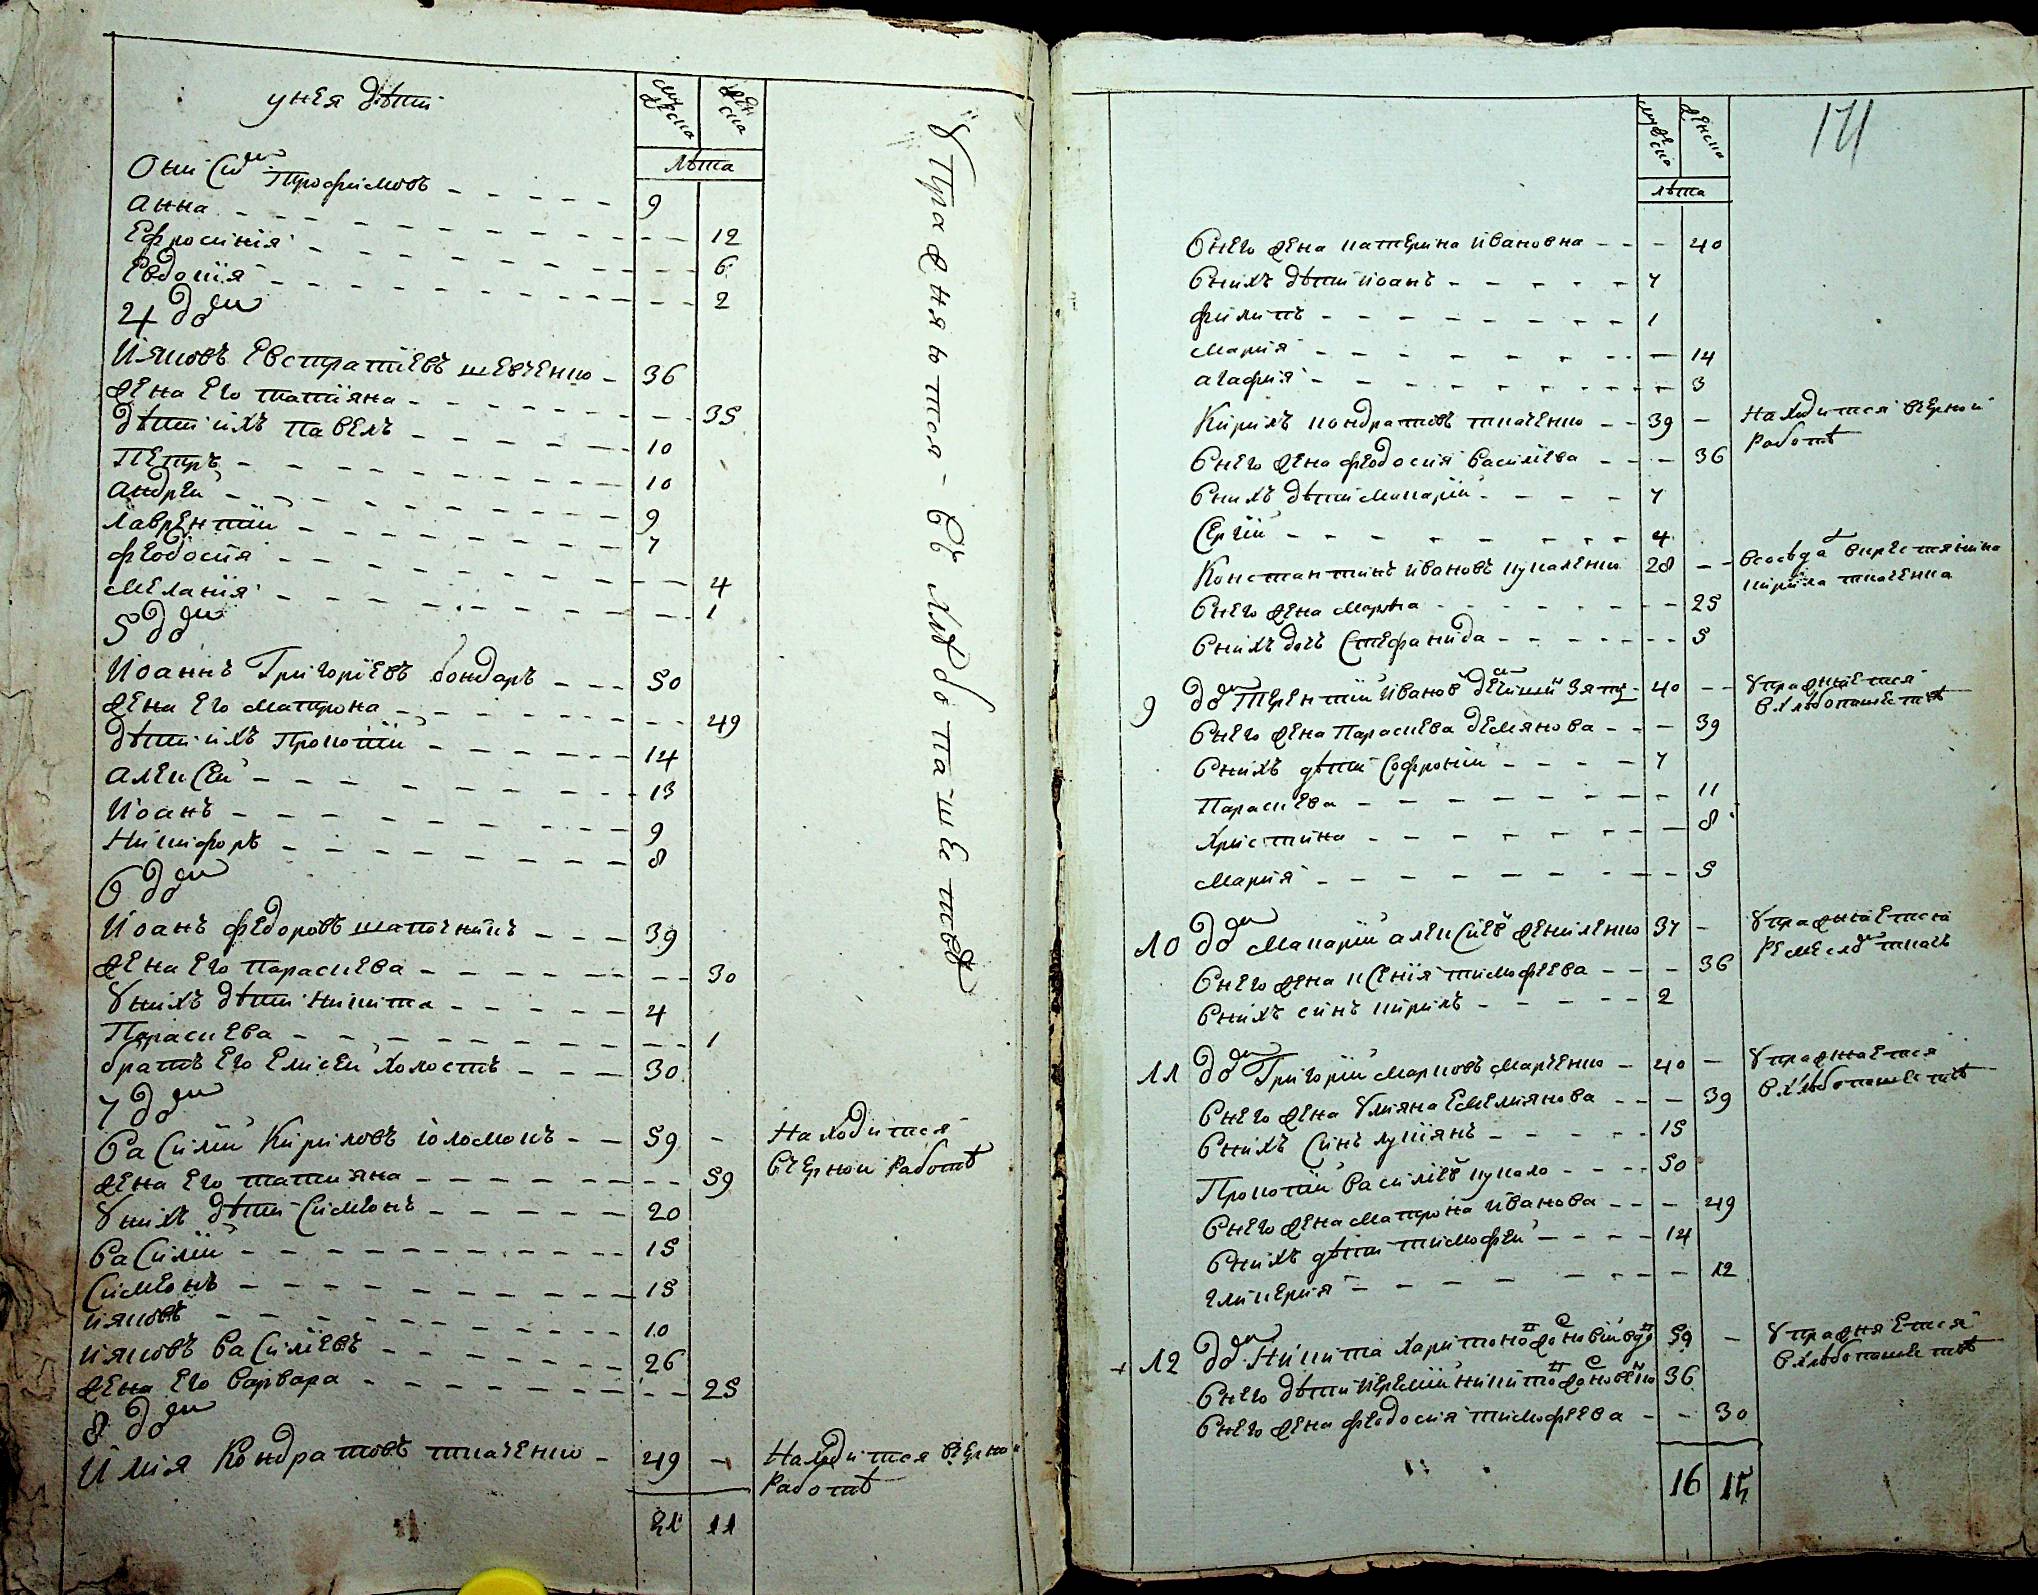 унея дѣти
мужеска
женска
лѣта
Онисим Трофимовъ 9
Анна 12
Ефросинія 6
Евдокія 2
4 дом
Ияковъ Евстратіевъ шевченко 36
жена Его татіяна 35
дѣти ихъ Павелъ 10
Петръ 10
Андреи 9
Лаврентіи 7
Феодосія 4
Меланія 1
5 дом
Иоаннъ Григоріевъ бондаръ 50
жена Его матрона 49
дѣти ихъ Прокопіи 14
Алексеи 13
Иоанъ 9
Никифоръ 8
6 дом
Иоанъ Федоровъ шапочникъ 39
жена Его параскева 30
Уних дѣти никита 4
Параскева 1
братъ Его Елисеи холостъ 30
7 дом
Василіи Кириловъ 59 - Находится
вчернои работѣ
жена Его татіяна 59
Уних дѣти Симеонъ 20
Василіи 15
Симеонъ 15
ияковъ 10
ияковъ Василіевъ 26
жена Его варвара 25
8 дом
Илія Кондратовъ ткаченко 49 - Находится вчерно
работѣ
21 11
Упражняются въ хлѣбопашествѣ
171
мужеска
женска
лѣта
Внего жена катерина ивановна 40
Вних дѣти иоанъ 7
филипъ 1
Марія 14
агафія 3
Кирилъ кондратовъ ткаченко 39 - Находится вчернои
работѣ
Внего жена феодосія василіева 36
Вних дѣти макаріи 7
Сергіи 4
Константинъ ивановъ кукаленко 28 - Всосѣда вкрестянина
кирила ткаченка
Внего жена марфа 25
Вних дочь Стефанида 5
9 дом Терентіи иванов зять 40 - Упражняется
вхлѣбопашествѣ
Внего жена Параскева демянова 39
Вних дѣти Софроніи 7
Параскева 11
Христина 8
Марія 5
10 дом макаріи алексіев 37 - Упражняется
ремесло ткать
Внего жена ксенія тимофеева 36
Вних синъ кирилъ 2
11 дом Григоріи марковъ марченко 40 - Упражняется
вхлѣбопашествѣ
Внего жена Уліяна Емеліянова 39
Вних Синъ лукіянъ 15
Прокопіи василіев кукало 50
Внего жена матрона иванова 49
Вних дѣти тимофеи 14
гликерія 12
+ 12 дом Никита харитонов 59 - Упражняется
вхлѣбопашествѣ
Внего дѣти 36
Внего жена феодосія тимофеева 30
16 15